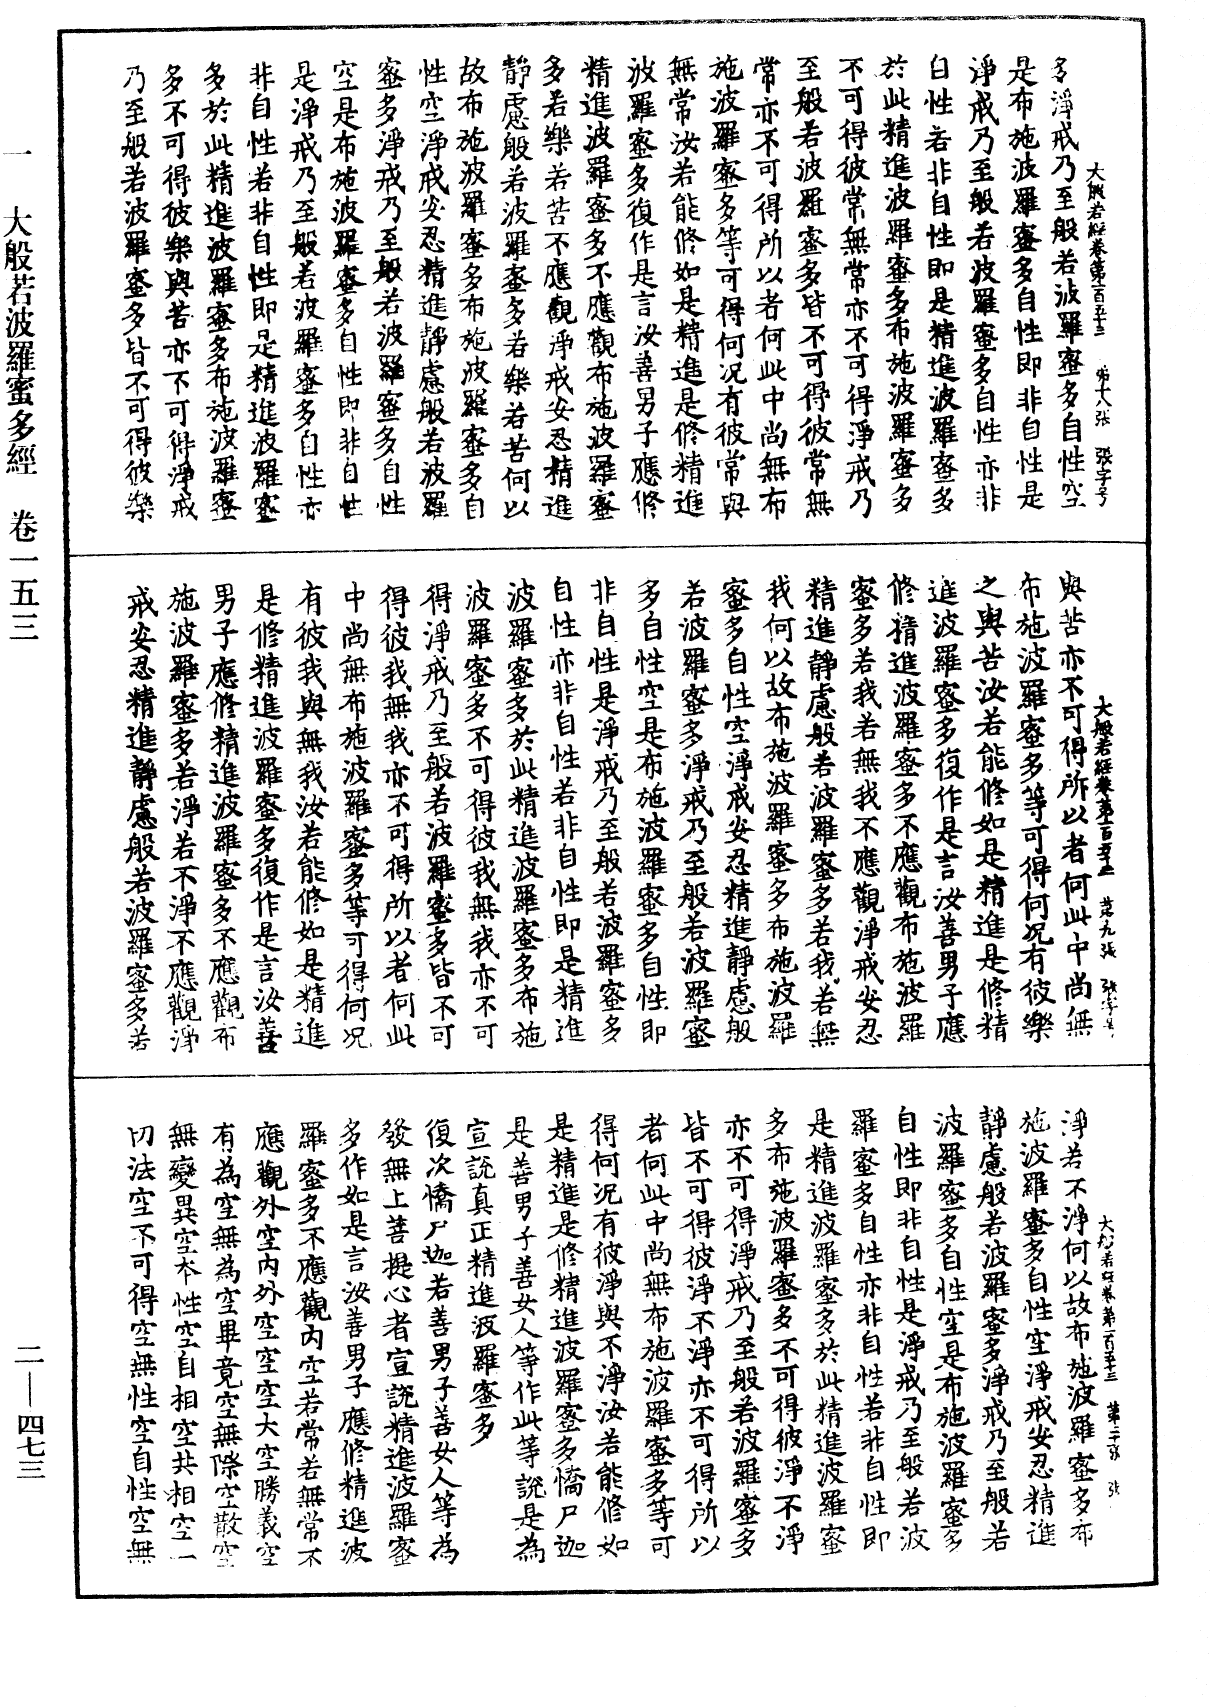 大般若經卷第一百五十三　第十八張　張字号
多淨戒乃至般若波羅蜜多自性空
是布施波羅蜜多自性即非自性是
淨戒乃至般若波羅蜜多自性亦非
自性若非自性即是精進波羅蜜多
於此精進波羅蜜多布施波羅蜜多
不可得彼常無常亦不可得淨戒乃
至般若波羅蜜多皆不可得彼常無
常亦不可得所以者何此中尚無布
施波羅蜜多等可得何況有彼常與
無常汝若能修如是精進是修精進
波羅蜜多復作是言汝善男子應修
精進波羅蜜多不應觀布施波羅蜜
多若樂若苦不應觀淨戒安忍精進
靜慮般若波羅蜜多若樂若苦何以
故布施波羅蜜多布施波羅蜜多自
性空淨戒安忍精進靜慮般若波羅
蜜多淨戒乃至般若波羅蜜多自性
空是布施波羅蜜多自性即非自性
是淨戒乃至般若波羅蜜多自性亦
非自性若非自性即是精進波羅蜜
多於此精進波羅蜜多布施波羅蜜
多不可得彼樂與苦亦不可得淨戒
乃至般若波羅蜜多皆不可得彼樂
大般若經卷第一百五十三　第十九張　張字号
與苦亦不可得所以者何此中尚無
布施波羅蜜多等可得何況有彼樂
之與苦汝若能修如是精進是修精
進波羅蜜多復作是言汝善男子應
修精進波羅蜜多不應觀布施波羅
蜜多若我若無我不應觀淨戒安忍
精進靜慮般若波羅蜜多若我若無
我何以故布施波羅蜜多布施波羅
蜜多自性空淨戒安忍精進靜慮般
若波羅蜜多淨戒乃至般若波羅蜜
多自性空是布施波羅蜜多自性即
非自性是淨戒乃至般若波羅蜜多
自性亦非自性若非自性即是精進
波羅蜜多於此精進波羅蜜多布施
波羅蜜多不可得彼我無我亦不可
得淨戒乃至般若波羅蜜多皆不可
得彼我無我亦不可得所以者何此
中尚無布施波羅蜜多等可得何況
有彼我與無我汝若能修如是精進
是修精進波羅蜜多復作是言汝善
男子應修精進波羅蜜多不應觀布
施波羅蜜多若淨若不淨不應觀淨
戒安忍精進靜慮般若波羅蜜多若
大般若經卷第一百五十三　第二十張　張
淨若不淨何以故布施波羅蜜多布
施波羅蜜多自性空淨戒安忍精進
靜慮般若波羅蜜多淨戒乃至般若
波羅蜜多自性空是布施波羅蜜多
自性即非自性是淨戒乃至般若波
羅蜜多自性亦非自性若非自性即
是精進波羅蜜多於此精進波羅蜜
多布施波羅蜜多不可得彼淨不淨
亦不可得淨戒乃至般若波羅蜜多
皆不可得彼淨不淨亦不可得所以
者何此中尚無布施波羅蜜多等可
得何況有彼淨與不淨汝若能修如
是精進是修精進波羅蜜多憍尸迦
是善男子善女人等作此等說是為
宣說真正精進波羅蜜多
復次憍尸迦若善男子善女人等為
發無上菩提心者宣說精進波羅蜜
多作如是言汝善男子應修精進波
羅蜜多不應觀內空若常若無常不
應觀外空內外空空空大空勝義空
有為空無為空畢竟空無際空散空
無變異空本性空自相空共相空一
切法空不可得空無性空自性空無
一　大般若波羅蜜多經　卷一五三
二—四七三